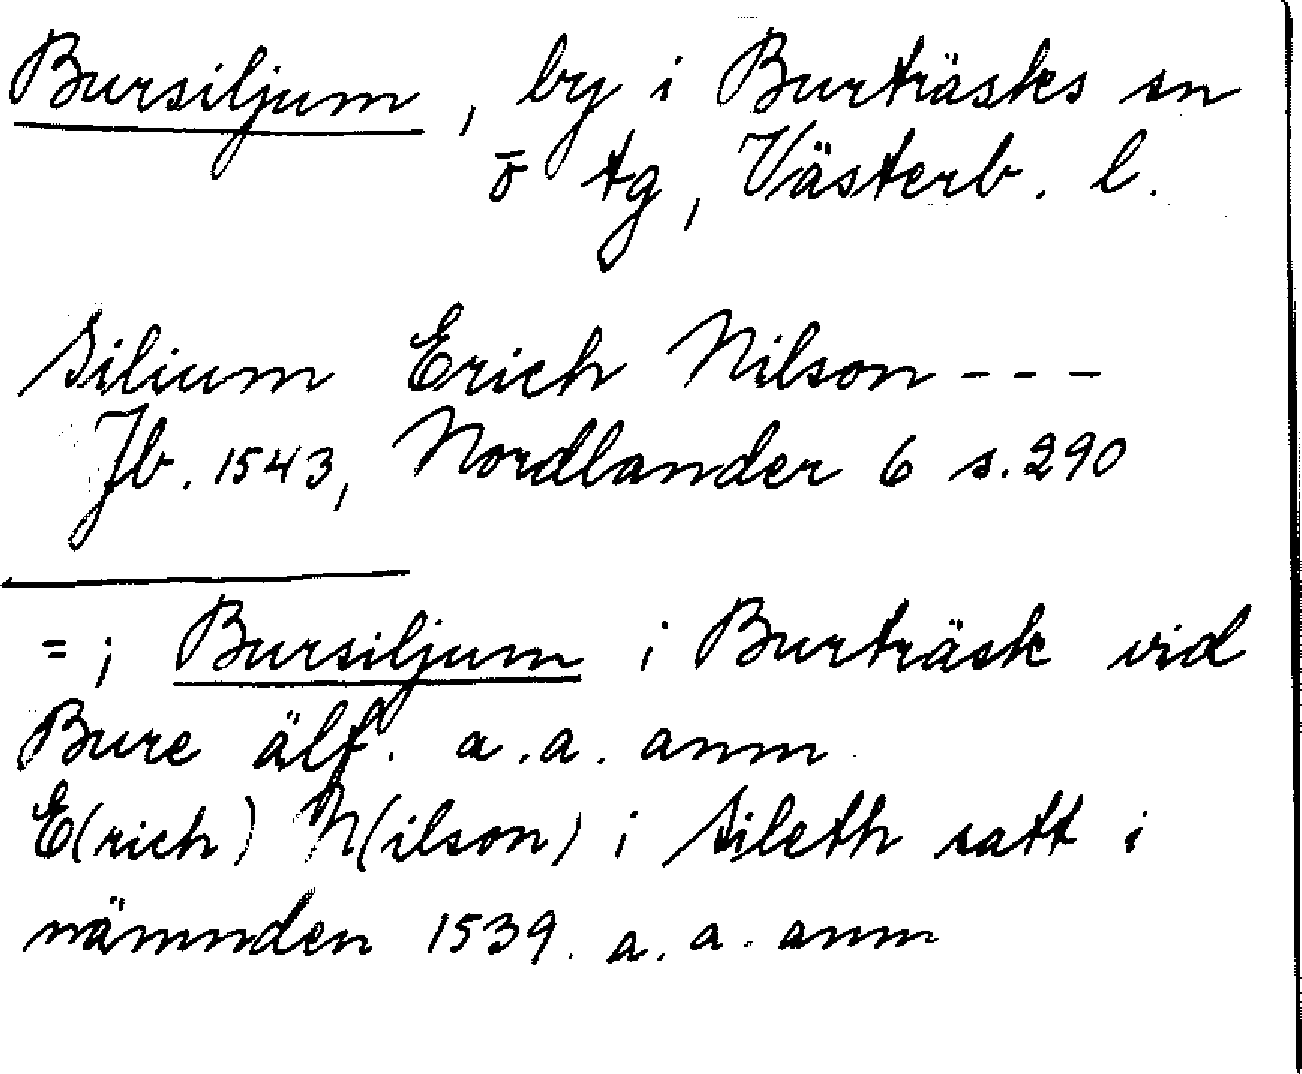 Bursiljum, by i Burträsks sn
ō tg, Västerb. l.
Silium Erich Nilson - - -
Jb. 1543, Nordlander 6 s. 290
= ; Bursiljum i Burträsk vid
Bure älf. a.a. anm.
E(rich) N(ilson) i Sileth satt i
nämnden 1539. a.a. anm